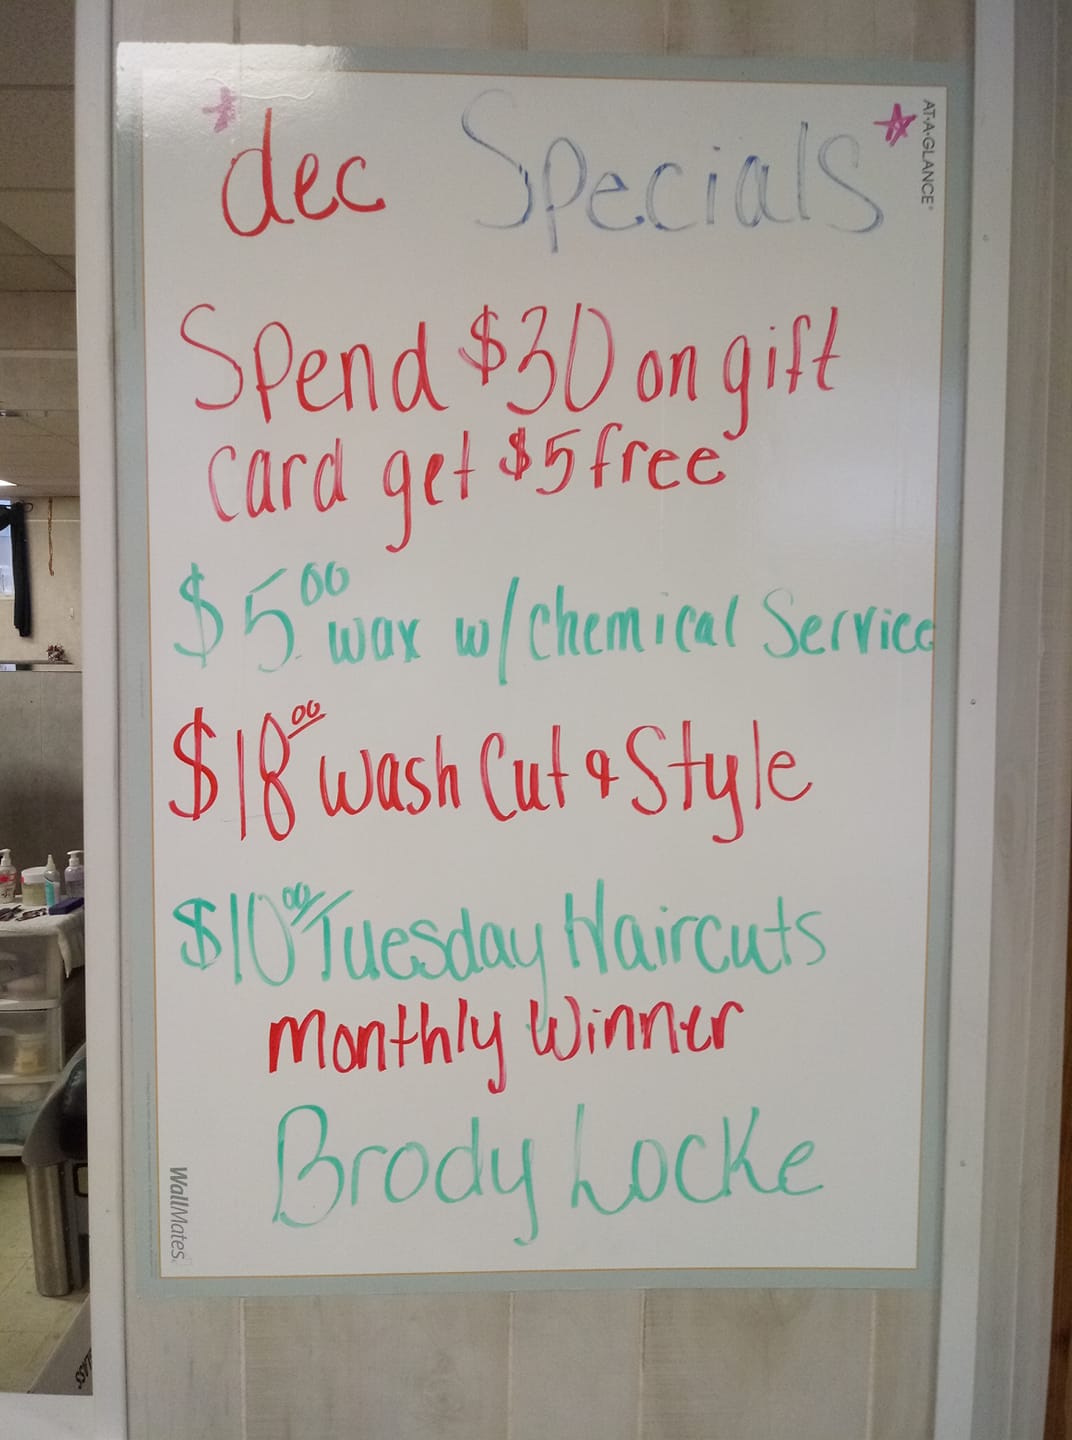 dec Specials
AT-A-GLANCE®
Spend $30 on gift
card get $5 free
$5.00 wax w/chemical Service
$18.00 wash Cut & Style
$10.00 Tuesday Haircuts
Monthly Winner
Brody Locke
WallMates